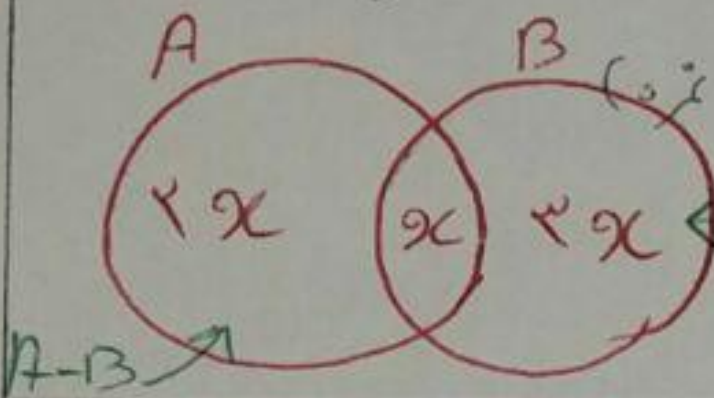 A B
۲x x ۳x
A-B